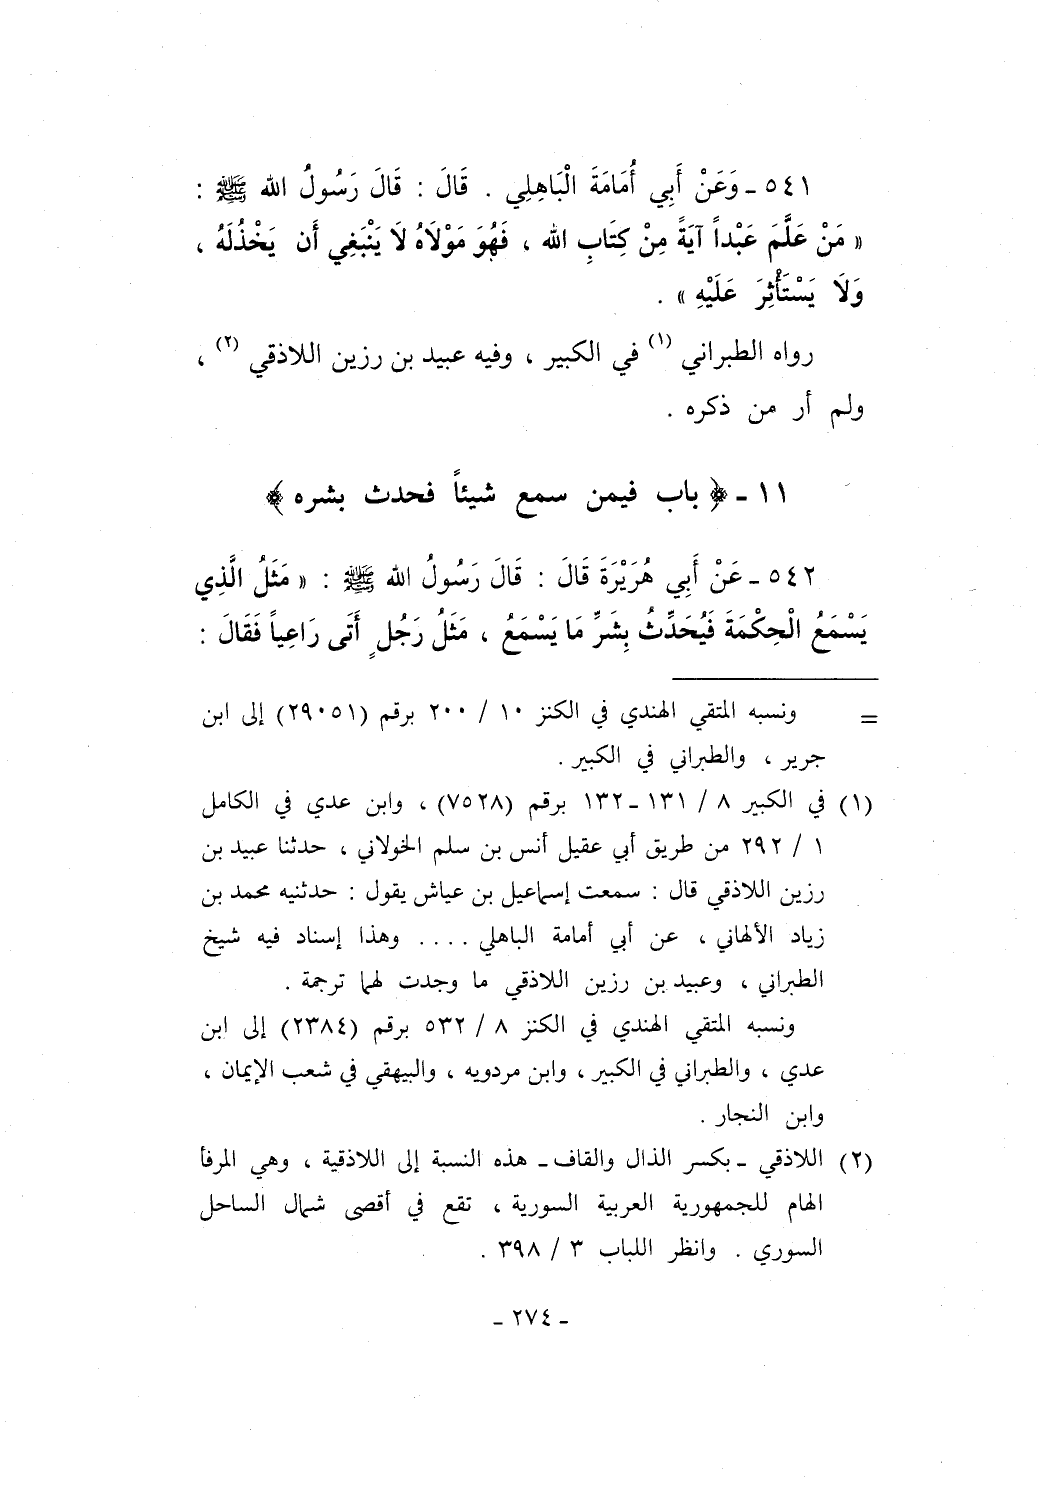 ٥٤١ ـ وَعَنْ أَبِي أُمَامَةَ الْبَاهِلِي . قَالَ : قَالَ رَسُولُ الله ﷺ :
« مَنْ عَلَّمَ عَبْداً آيَةً مِنْ كِتَابِ الله ، فَهُوَ مَوْلَاهُ لاَ يَنْبَغِي أَن يَخْذُلَهُ ،
وَلَا يَسْتَأْثِرَ عَلَيْهِ » .
رواه الطبراني (١) في الكبير ، وفيه عبيد بن رزين اللاذقي (٢) ،
ولم أر من ذكره .
١١ ـ ﴿ باب فيمن سمع شيئاً فحدث بشره ﴾
٥٤٢ ـ عَنْ أَبِي هُرَيْرَةَ قَالَ : قَالَ رَسُولُ الله ﷺ : « مَثَلُ الَّذِي
يَسْمَعُ الْحِكْمَةَ فَيُحَدِّثُ بِشَرِّ مَا يَسْمَعُ ، مَثَلُ رَجُلٍ أَتَى رَاعِياً فَقَالَ :
= ونسبه المتقي الهندي في الكنز ١٠ / ٢٠٠ برقم (٢٩٠٥١) إلى ابن
جرير ، والطبراني في الكبير .
(١) في الكبير ٨ / ١٣١ ـ ١٣٢ برقم (٧٥٢٨) ، وابن عدي في الكامل
١ / ٢٩٢ من طريق أبي عقيل أنس بن سلم الخولاني ، حدثنا عبيد بن
رزين اللاذقي قال : سمعت إسماعيل بن عياش يقول : حدثنيه محمد بن
زياد الألهاني ، عن أبي أمامة الباهلي .... وهذا إسناد فيه شيخ
الطبراني ، وعبيد بن رزين اللاذقي ما وجدت لهما ترجمة .
ونسبه المتقي الهندي في الكنز ٨ / ٥٣٢ برقم (٢٣٨٤) إلى ابن
عدي ، والطبراني في الكبير ، وابن مردويه ، والبيهقي في شعب الإيمان ،
وابن النجار .
(٢) اللاذقي ـ بكسر الذال والقاف ـ هذه النسبة إلى اللاذقية ، وهي المرفأ
الهام للجمهورية العربية السورية ، تقع في أقصى شمال الساحل
السوري . وانظر اللباب ٣ / ٣٩٨ .
ـ ٢٧٤ ـ